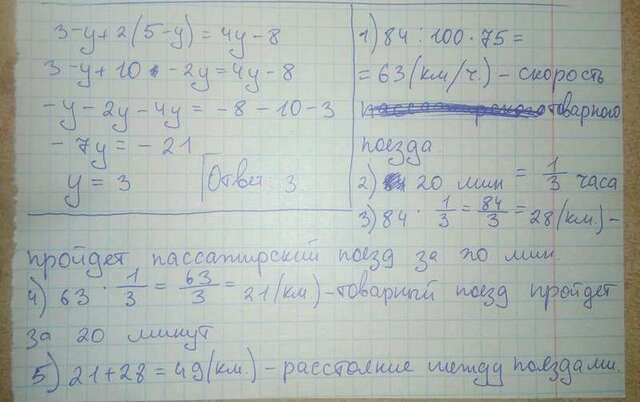 3-y+2(5-y)=4y-8
3-y+10-2y=4y-8
-y-2y-4y=-8-10-3
-7y=-21
y=3 Ответ 3
1) 84:100·75=
=63(км/ч.)-скорость
товарного
поезда
2) 20 мин = 1/3 часа
3) 84·1/3=84/3=28(км.)-
пройдет пассажирский поезд за 20 мин.
4) 63·1/3=63/3=21(км)-товарный поезд пройдет
за 20 минут
5) 21+28=49(км.)-расстояние между поездами.